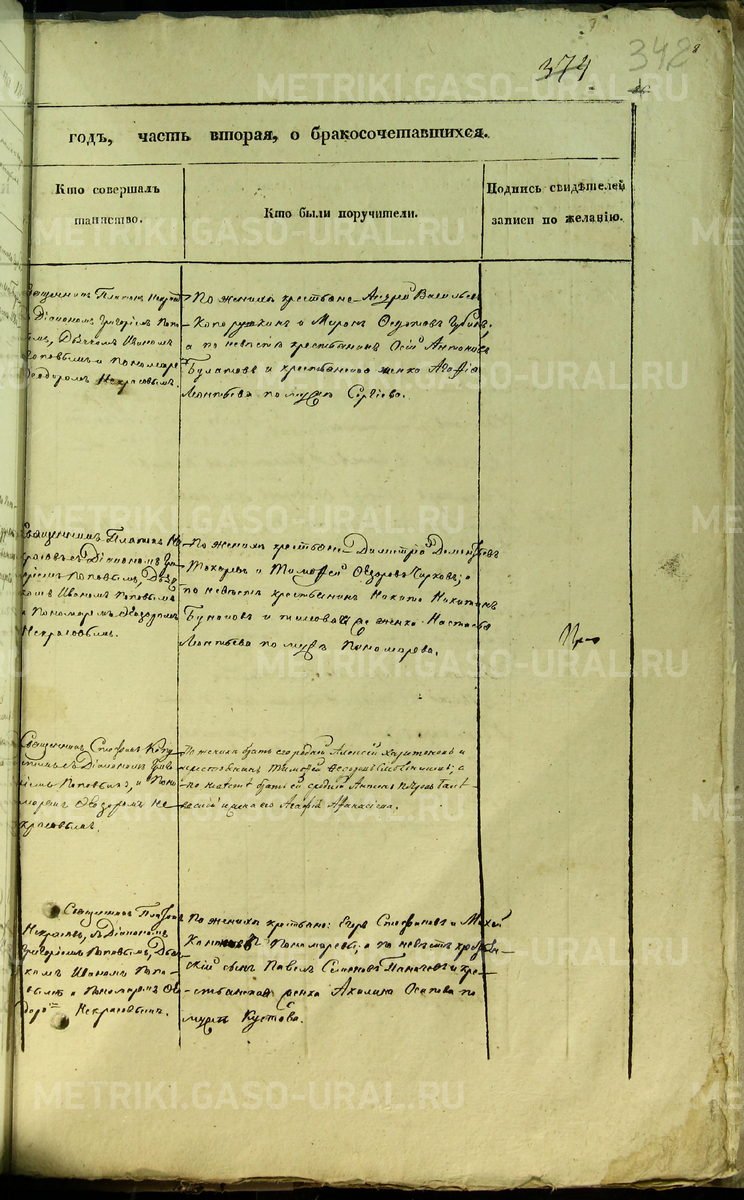 374 342
годъ, часть вторая, о бракосочетавшихся.
Кто совершалъ
таинство.
Кто были поручители.
Подпись свидѣтелей
записи по желанію.
Священникъ Платонъ
Діакономъ Григоріемъ Попо
вымъ, Дьячкомъ Иваномъ
Поповымъ и пономаремъ
Феодоромъ Некрасовымъ.
По женихѣ крестьяне Андрей Васильевъ
и Миронъ
а по невѣстѣ крестьянинъ Осипъ Антоновъ
Булатовъ и крестьянская женка Агафія
Леонтьева по мужѣ Сергѣева.
Священникъ Платонъ Не
красовъ съ Діакономъ Гри
горіемъ Поповымъ, Дьяч
комъ Иваномъ Поповымъ
и Пономаремъ Феодоромъ
Некрасовымъ.
По женихѣ крестьяне Димитрій Дементьевъ
Токаревъ и Тимофей Федоровъ Чирковъ; а
по невѣстѣ крестьянинъ Никита Никитинъ
и женка Настасья
Леонтьева по мужѣ Пономарева.
Священникъ Стефанъ
съ Діакономъ Григо
ріемъ Поповымъ, и Поно
маремъ Федоромъ Не
красовымъ.
По женихѣ братъ его родной Алексѣй Харитоновъ и
крестьянинъ Тимофей Федоровъ а
по невѣстѣ братъ ей сродной Антонъ Петровъ
и жена его Агафія Афанасьева.
Священникъ Платонъ
Некрасовъ, съ Діакономъ
Григоріемъ Поповымъ, Дьяч
комъ Иваномъ Попо
вымъ и Пономаремъ Фе
доромъ Некрасовымъ.
По женихѣ крестьяне: Егоръ Стефановъ и Михей
Пономаревы; а по невѣстѣ крестьян
скій сынъ Павелъ Семеновъ и кре
стьянская женка Акилина Осипова по
мужѣ Кустова.
METRIKI.GASO-URAL.RU